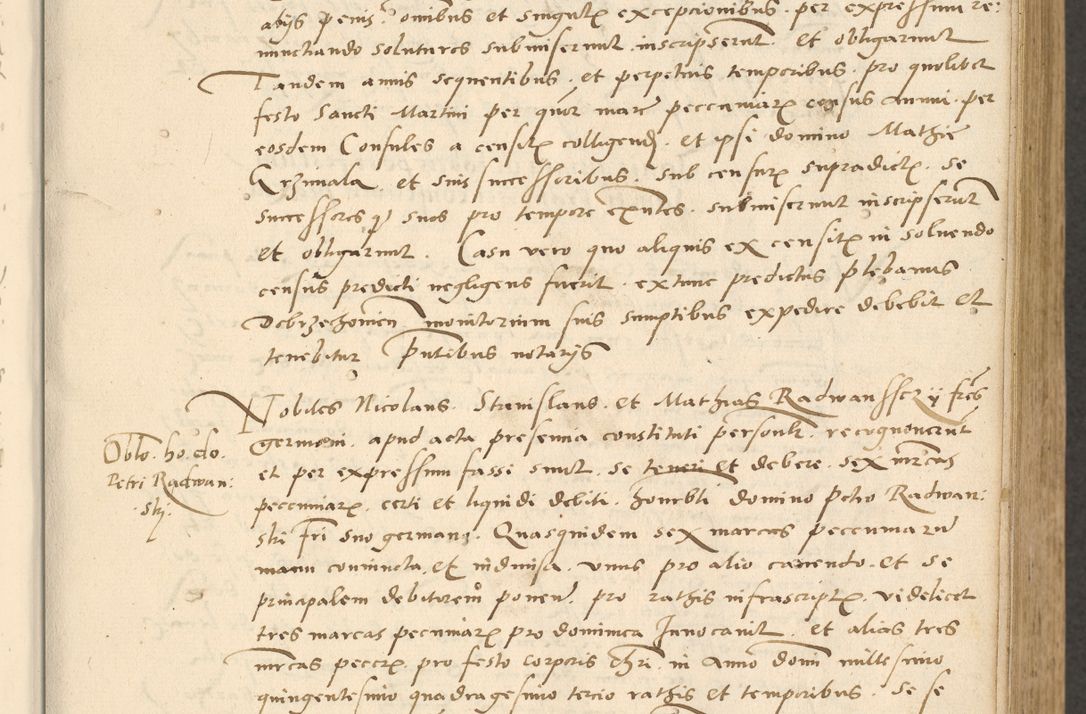 alijs penis omnibus et singulis excepcionibus per expressum re:
nunctiando soluturos submiserunt inscripserunt et obligarunt
Tandem annis sequentibus et perpetuis temporibus pro quolibet
festo Sancti Martini per quor marc peccuniarz census annui per
eosdem Consules a censitz colligend et ipsi domino Mathie
Grzimala et suis successoribus sub censurz supradictz se
successores q suos pro tempore exntes submiserunt inscripserunt
et obligarunt Casu vero quo aliquis ex censitz in soluendo
census predicti negligens fuerit extunc predictus plebanus
Dobrzechonien monitorium suis sumptibus expedire debebit et
tenebitur Pntibus notarijs
Nobiles Nicolaus Stanislaus et Mathias Radwansscz y fres
germani apud acta presencia constituti personlr recognouerunt
Oblo ho do
Petri Radwan:
skj
et per expressum fassi sunt se teneri et debere sex mrcas
peccuniarz certi et liquidi debiti honorbli domino Petro Radwan:
ski fri suo germano Quasquidem sex marcas peccuniarum
manu coniuncta et indiuisa vnus pro alio cauendo et se
principalem debitorem ponen pro rathis infrascriptz videlicet
tres marcas pecuniarz pro dominica Innocauit et alias tres
mrcas peccrz pro festo corporis Chri in Anno domi millesimo
quingentesimo quadragesimo tercio rathis et temporibus se se